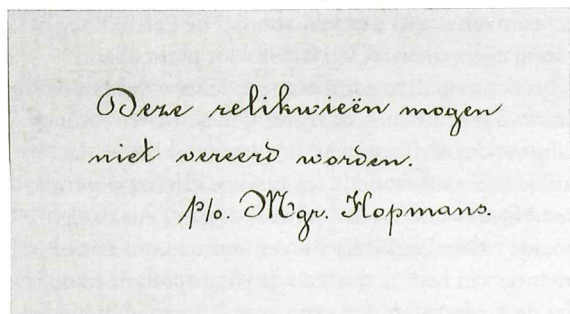 Deze relikwieën mogen
niet vereerd worden.
p/o. Mgr. Hopmans.